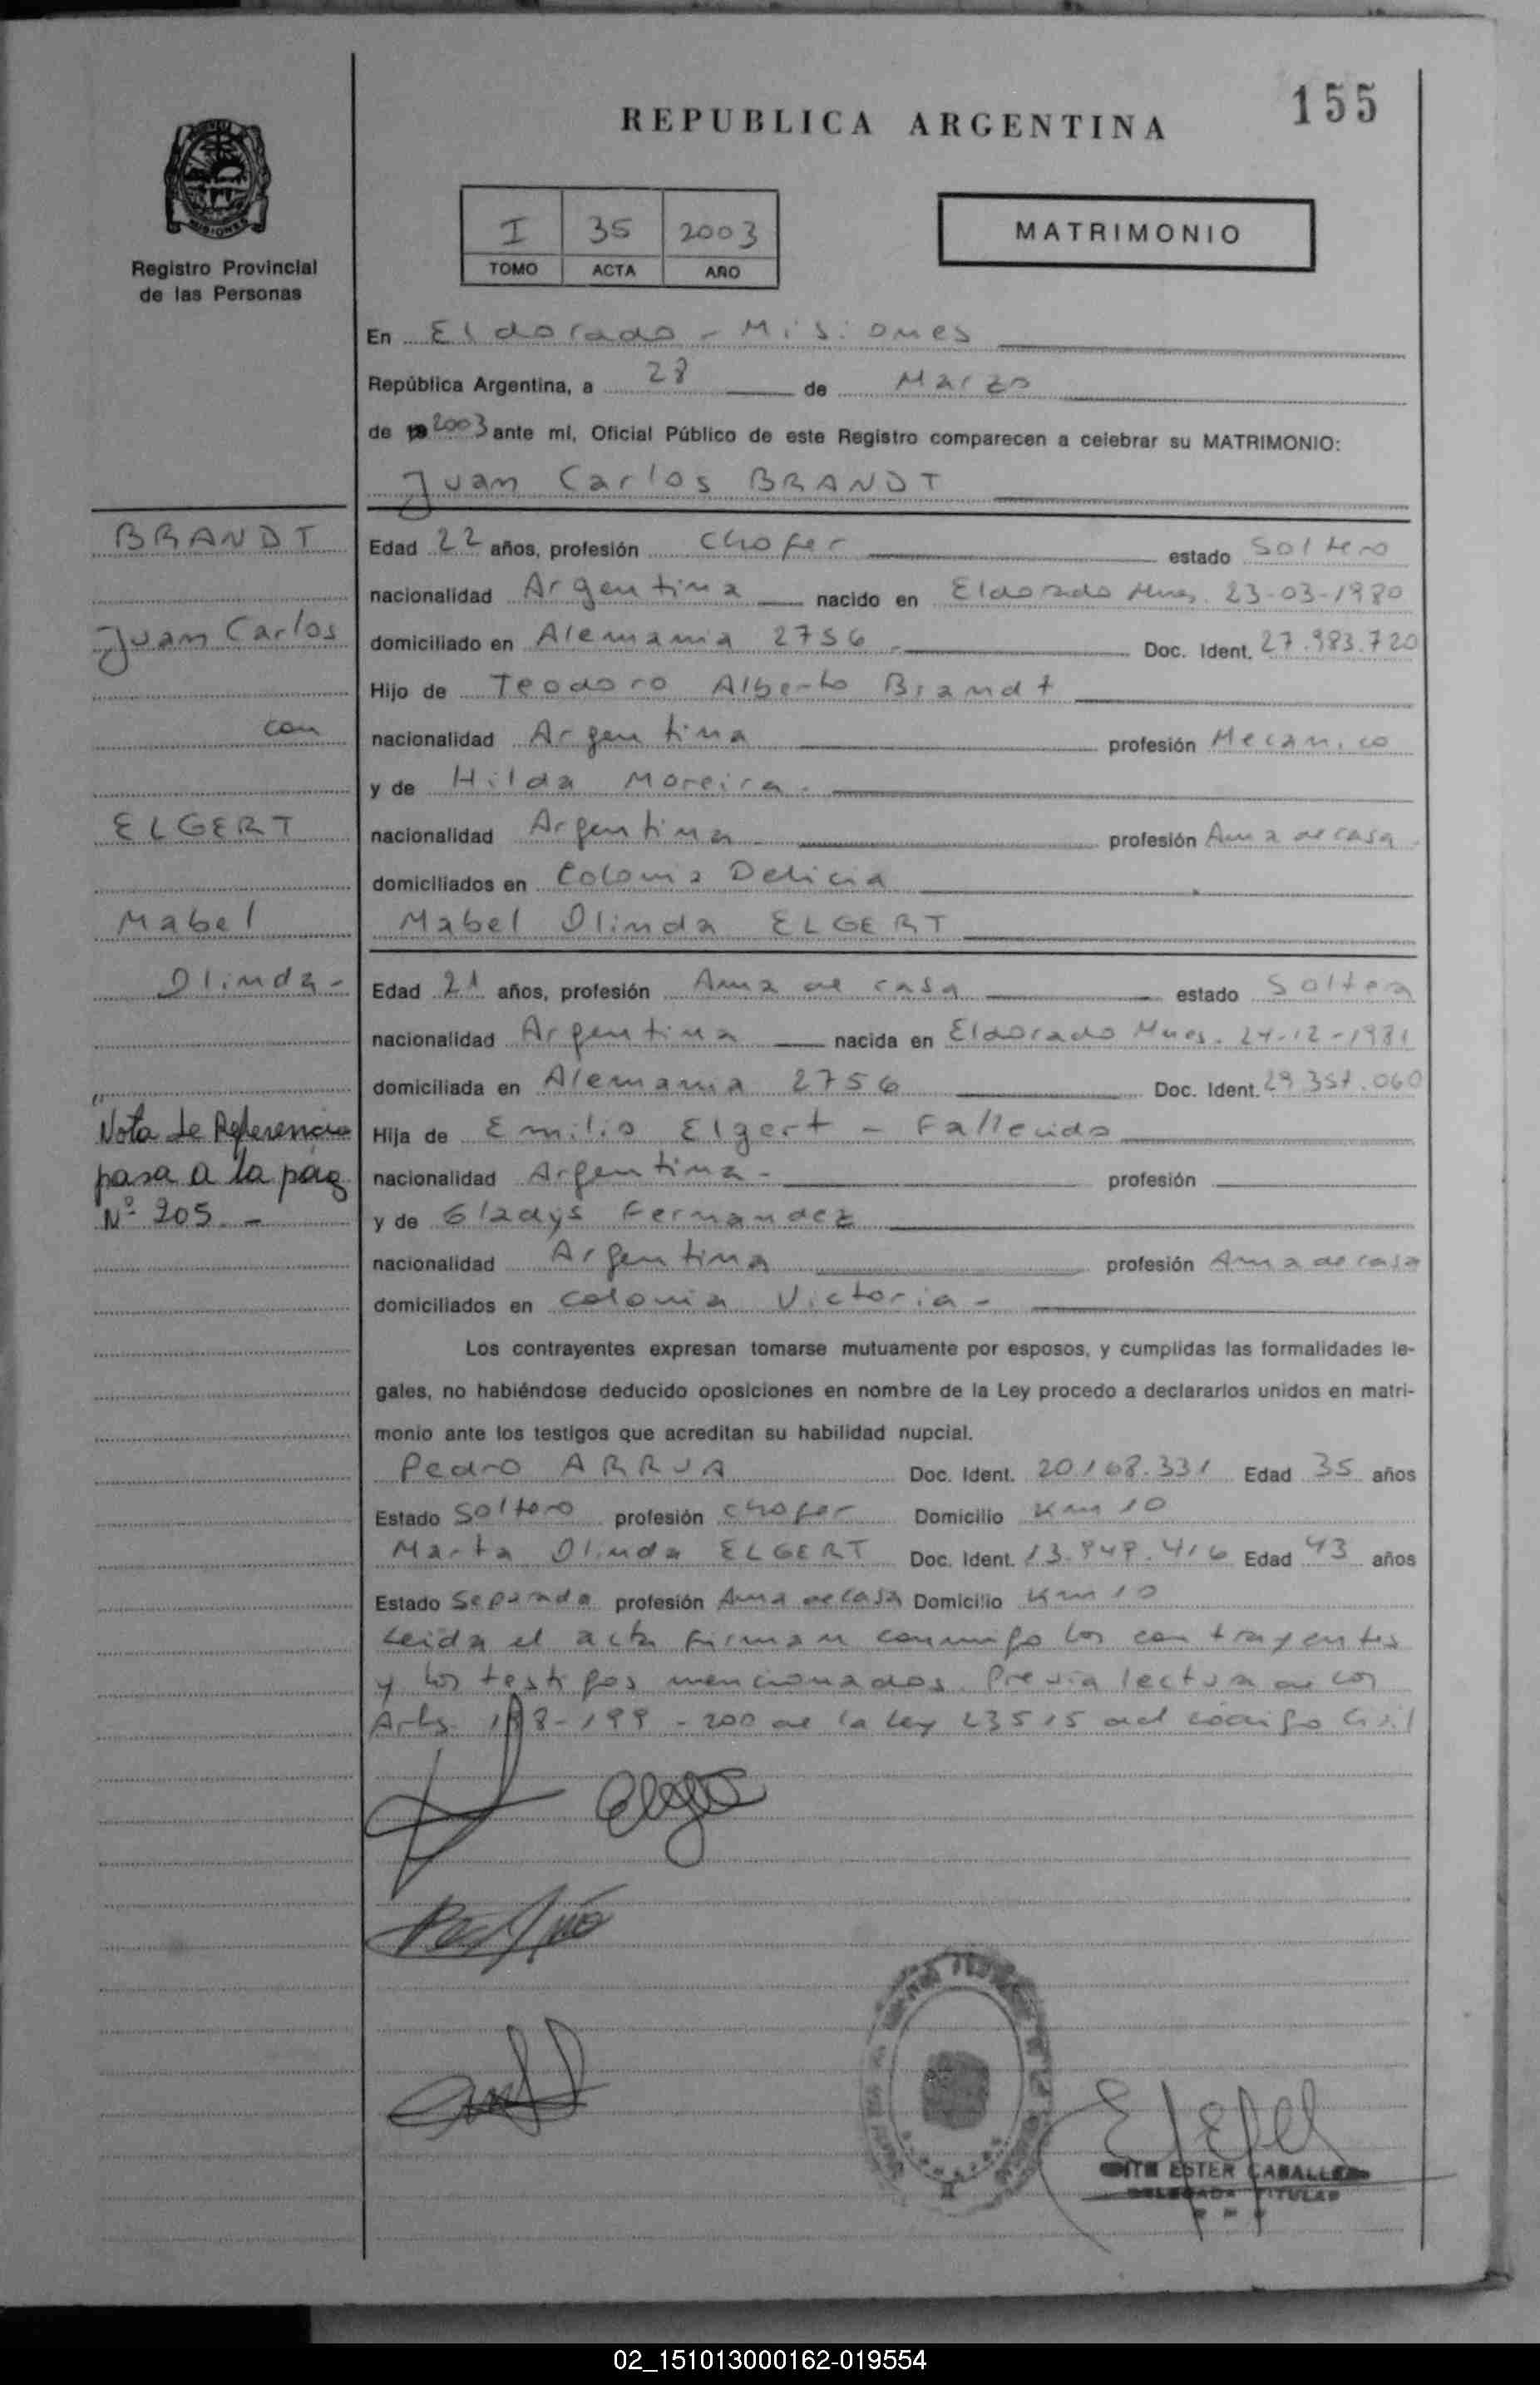 155
REPUBLICA ARGENTINA
I 35 2003
TOMO ACTA AÑO
MATRIMONIO
Registro Provincial
de las Personas
En Eldorado - Misiones
República Argentina, a 28 de Marzo
de 2003 ante mí, Oficial Público de este Registro comparecen a celebrar su MATRIMONIO:
Juan Carlos BRANDT
BRANDT
Juan Carlos
con
ELGERT
Mabel
Olinda-
Nota de Referencia
pasa a la pág
Nº 205.-
Edad 22 años, profesión Chofer estado Soltero
nacionalidad Argentina nacido en Eldorado Mnes. 23-03-1980
domiciliado en Alemania 2756 Doc. Ident. 27.983.720
Hijo de Teodoro Alberto Brandt
nacionalidad Argentina profesión Mecanico
y de Hilda Moreira.
nacionalidad Argentina profesión Ama de casa
domiciliados en Colonia Delicia
Mabel Olinda ELGERT
Edad 21 años, profesión Ama de casa estado Soltera
nacionalidad Argentina nacida en Eldorado Mnes. 24-12-1981
domiciliada en Alemania 2756 Doc. Ident. 29.357.060
Hija de Emilio Elgert - Fallecido
nacionalidad Argentina- profesión
y de Gladys Fernandez
nacionalidad Argentina profesión Ama de casa
domiciliados en Colonia Victoria-
Los contrayentes expresan tomarse mutuamente por esposos, y cumplidas las formalidades le-
gales, no habiéndose deducido oposiciones en nombre de la Ley procedo a declararlos unidos en matri-
monio ante los testigos que acreditan su habilidad nupcial.
Pedro ARRUA Doc. Ident. 20.168.331 Edad 35 años
Estado Soltero profesión chofer Domicilio Km 10
Marta Olinda ELGERT Doc. Ident. 13.949.416 Edad 43 años
Estado Separada profesión Ama de casa Domicilio Km 10
Leida el acta firman conmigo los contrayentes
y los testigos mencionados. Previa lectura de los
Arts. 198-199-200 de la Ley 23515 del Código Civil
ESTER CABALLE
DELEGADA TITULAR
02_151013000162-019554